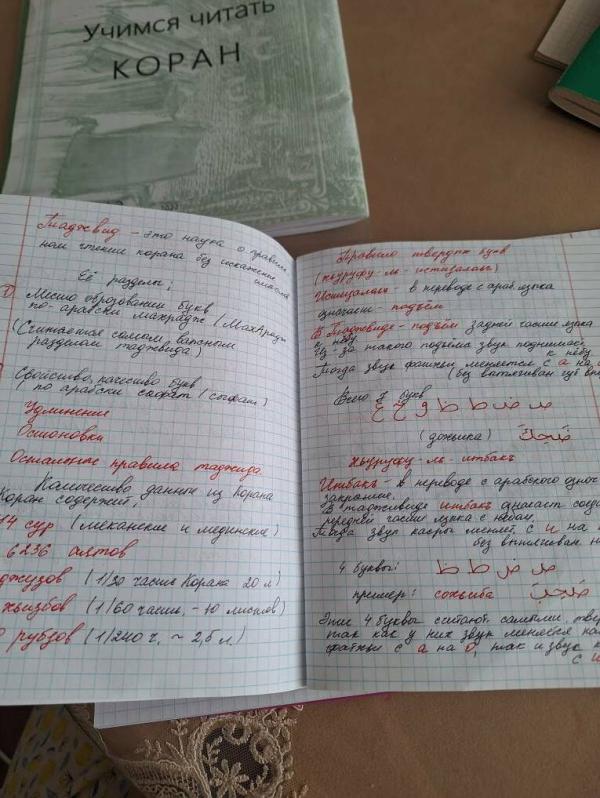 Учимся читать
КОРАН
Таджвид - это наука о правиль
ном чтении корана без искажения
смысла
Её разделы;
Место образовании букв
по-арабски махрадж (
(Считается самым важным
разделом таджвида)
Свойство, качество букв
по арабски сыфат (сыфат)
Удлинение
Остановки
Остальные правила таджвида
Количество данные из Корана
Коран содержит;
14 сур (мекканские и мединские)
6236 аятов
джузов (1/30 часть Корана 20 л)
хьизбов (1/60 часть, ~ 10 листов)
рубзов (1/240 ч, ~ 2,5 л.)
Правило твердых букв
(хьуруфу-ль-истизаляъ)
Истизаляъ - в переводе с араб. языка
означает - подъём
В Таджвиде - подъём задней части языка
к нёбу
Из за такого подъема звук поднимает
к нёбу
Тогда звук фатхи меняется с а на
(без вытягиван губ
Всего 7 букв
ص ض ط ظ ق خ غ
(дохьика) ضَحِكَ
хьуруфу-ль-итбакъ
Итбакъ - в переводе с арабского означ
закрытие.
В таджвиде итбакъ означает соед
средней части языка с небом.
Тогда звук касры меняет с и на
без вытягиван
4 буквы: ص ض ط ظ
пример: сохьиба صَحِبَ
Эти 4 буквы считают. самыми твер
так как у них звук меняется
фатхи с а на о, так и звук к
с и